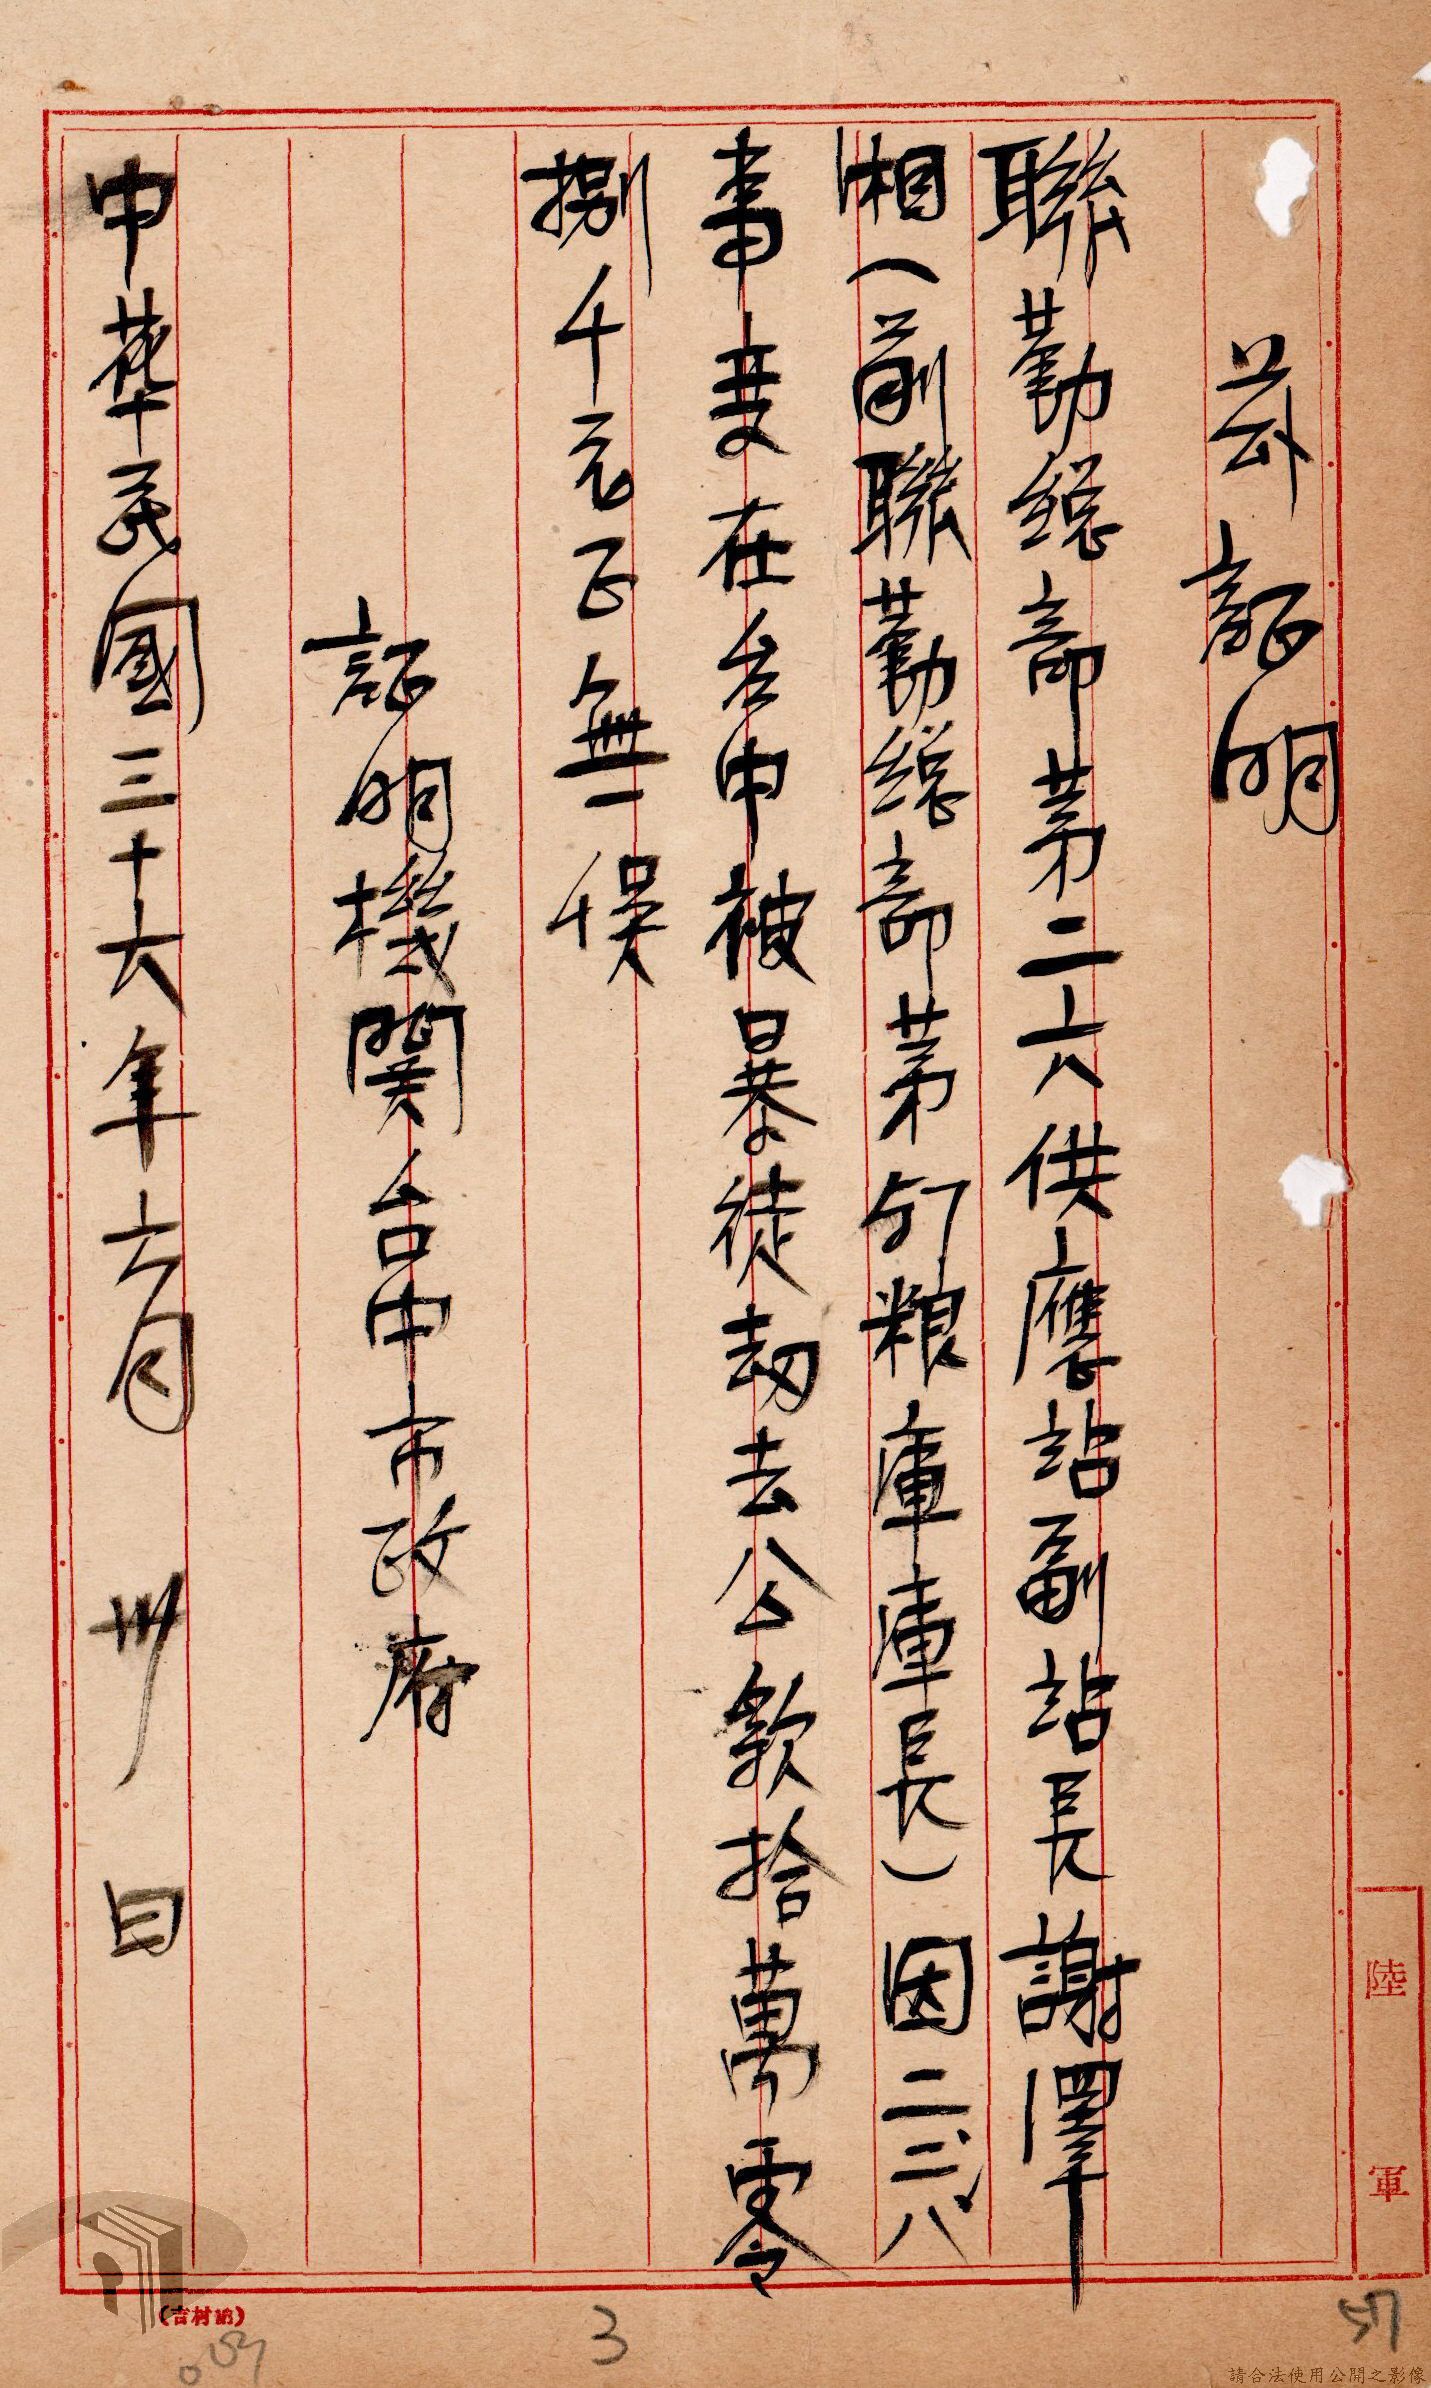 茲証明
聯勤總部第二六供應站副站長謝澤
湘(前聯勤總部第57粮庫庫長)因二、二、八
事变在台中被暴徒劫去公款拾萬零
捌千元正無誤
証明機関台中市政府
中華民國三十六年六月卅日
陸軍
3
57
請合法使用公開之影像